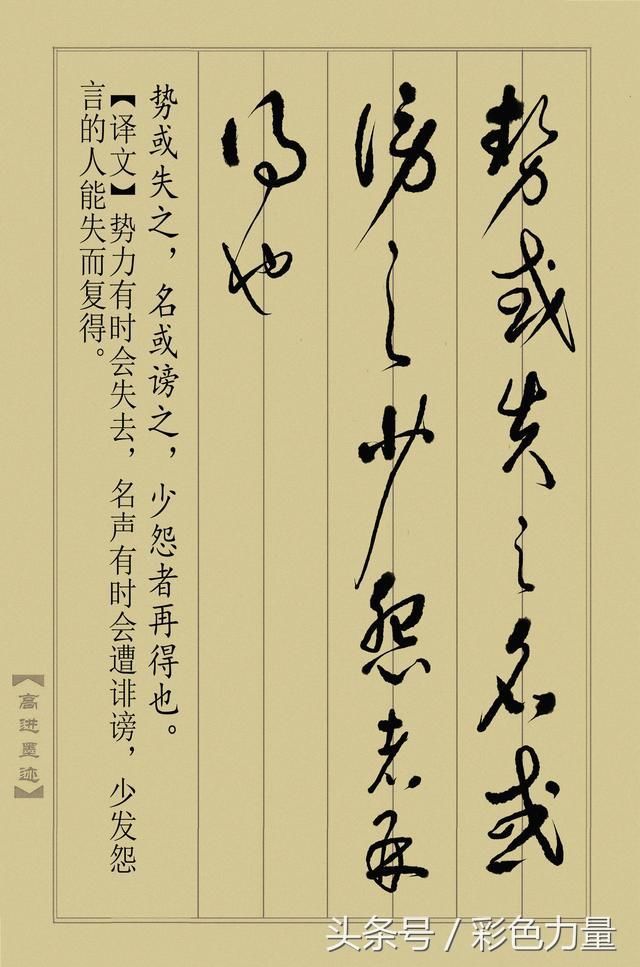 势或失之名或
谤之少怨者再
得也
势或失之，名或谤之，少怨者再得也。
【译文】势力有时会失去，名声有时会遭诽谤，少发怨
言的人能失而复得。
【高进墨迹】
头条号／彩色力量